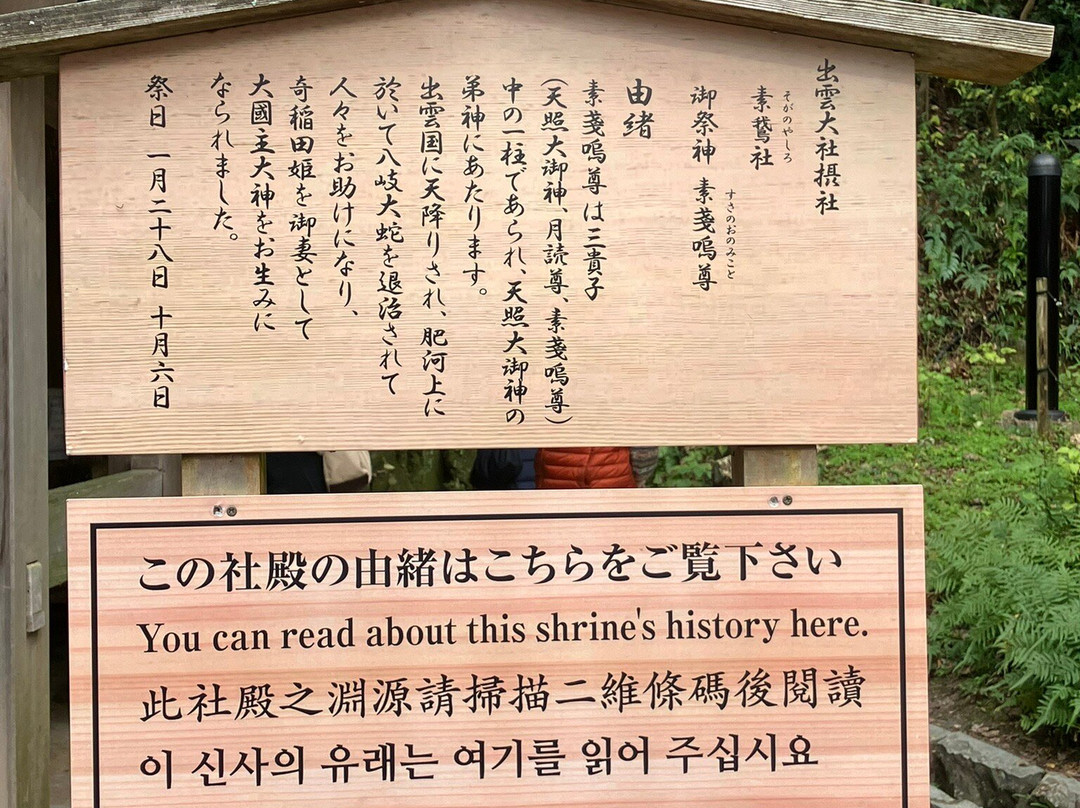 出雲大社摂社
素鵞社
そがのやしろ
御祭神 素戔嗚尊
すさのおのみこと
由緒
素戔嗚尊は三貴子
(天照大御神、月読尊、素戔嗚尊)
中の一柱であられ、天照大御神の
弟神にあたります。
出雲国に天降りされ、肥河上に
於いて八岐大蛇を退治されて
人々をお助けになり、
奇稲田姫を御妻として
大國主大神をお生みに
なられました。
祭日 一月二十八日 十月六日
この社殿の由緒はこちらをご覧下さい
You can read about this shrine's history here.
此社殿之淵源請掃描二維條碼後閱讀
이 신사의 유래는 여기를 읽어 주십시요